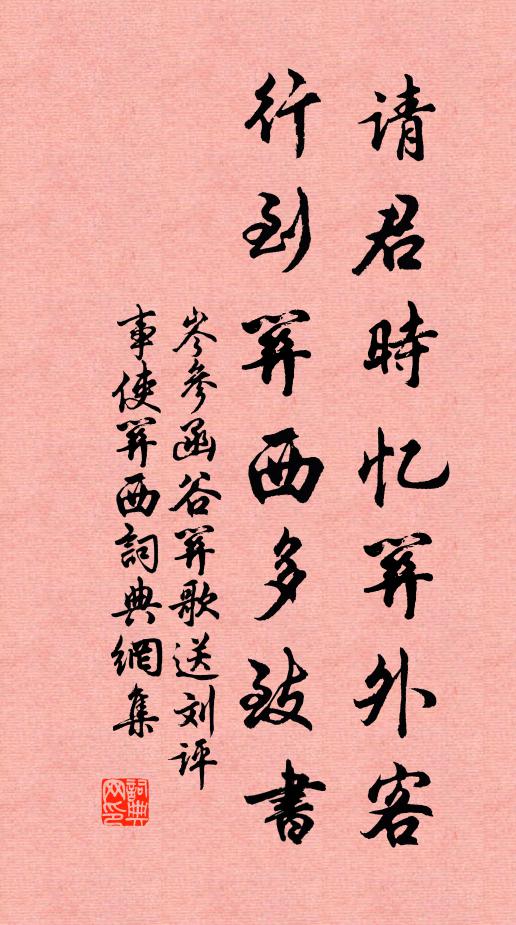 请君時忆関外客
行到関西多致書
岑参函谷関歌送刘评
事使関西詞典網集
詞典
网印